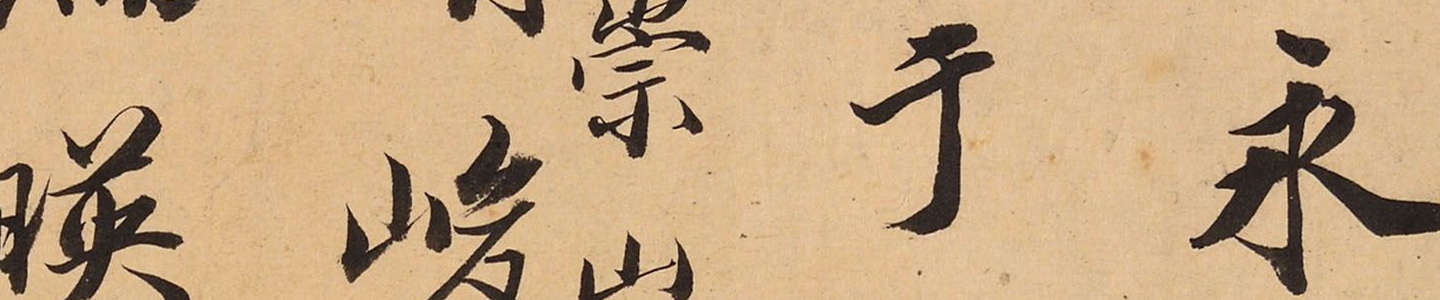 永
于
崇山
峻
暎